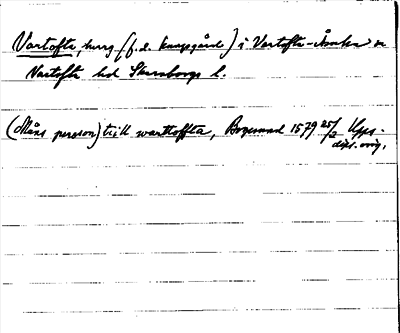 Vartofta, herrg (f.d. kungsgård) i Vartofta-Åsaka sn
Vartofta hd Skaraborgs l.
(Måns person) till warttoffta, Bogesund 1579 25/2 Upps.
dipl. orig.